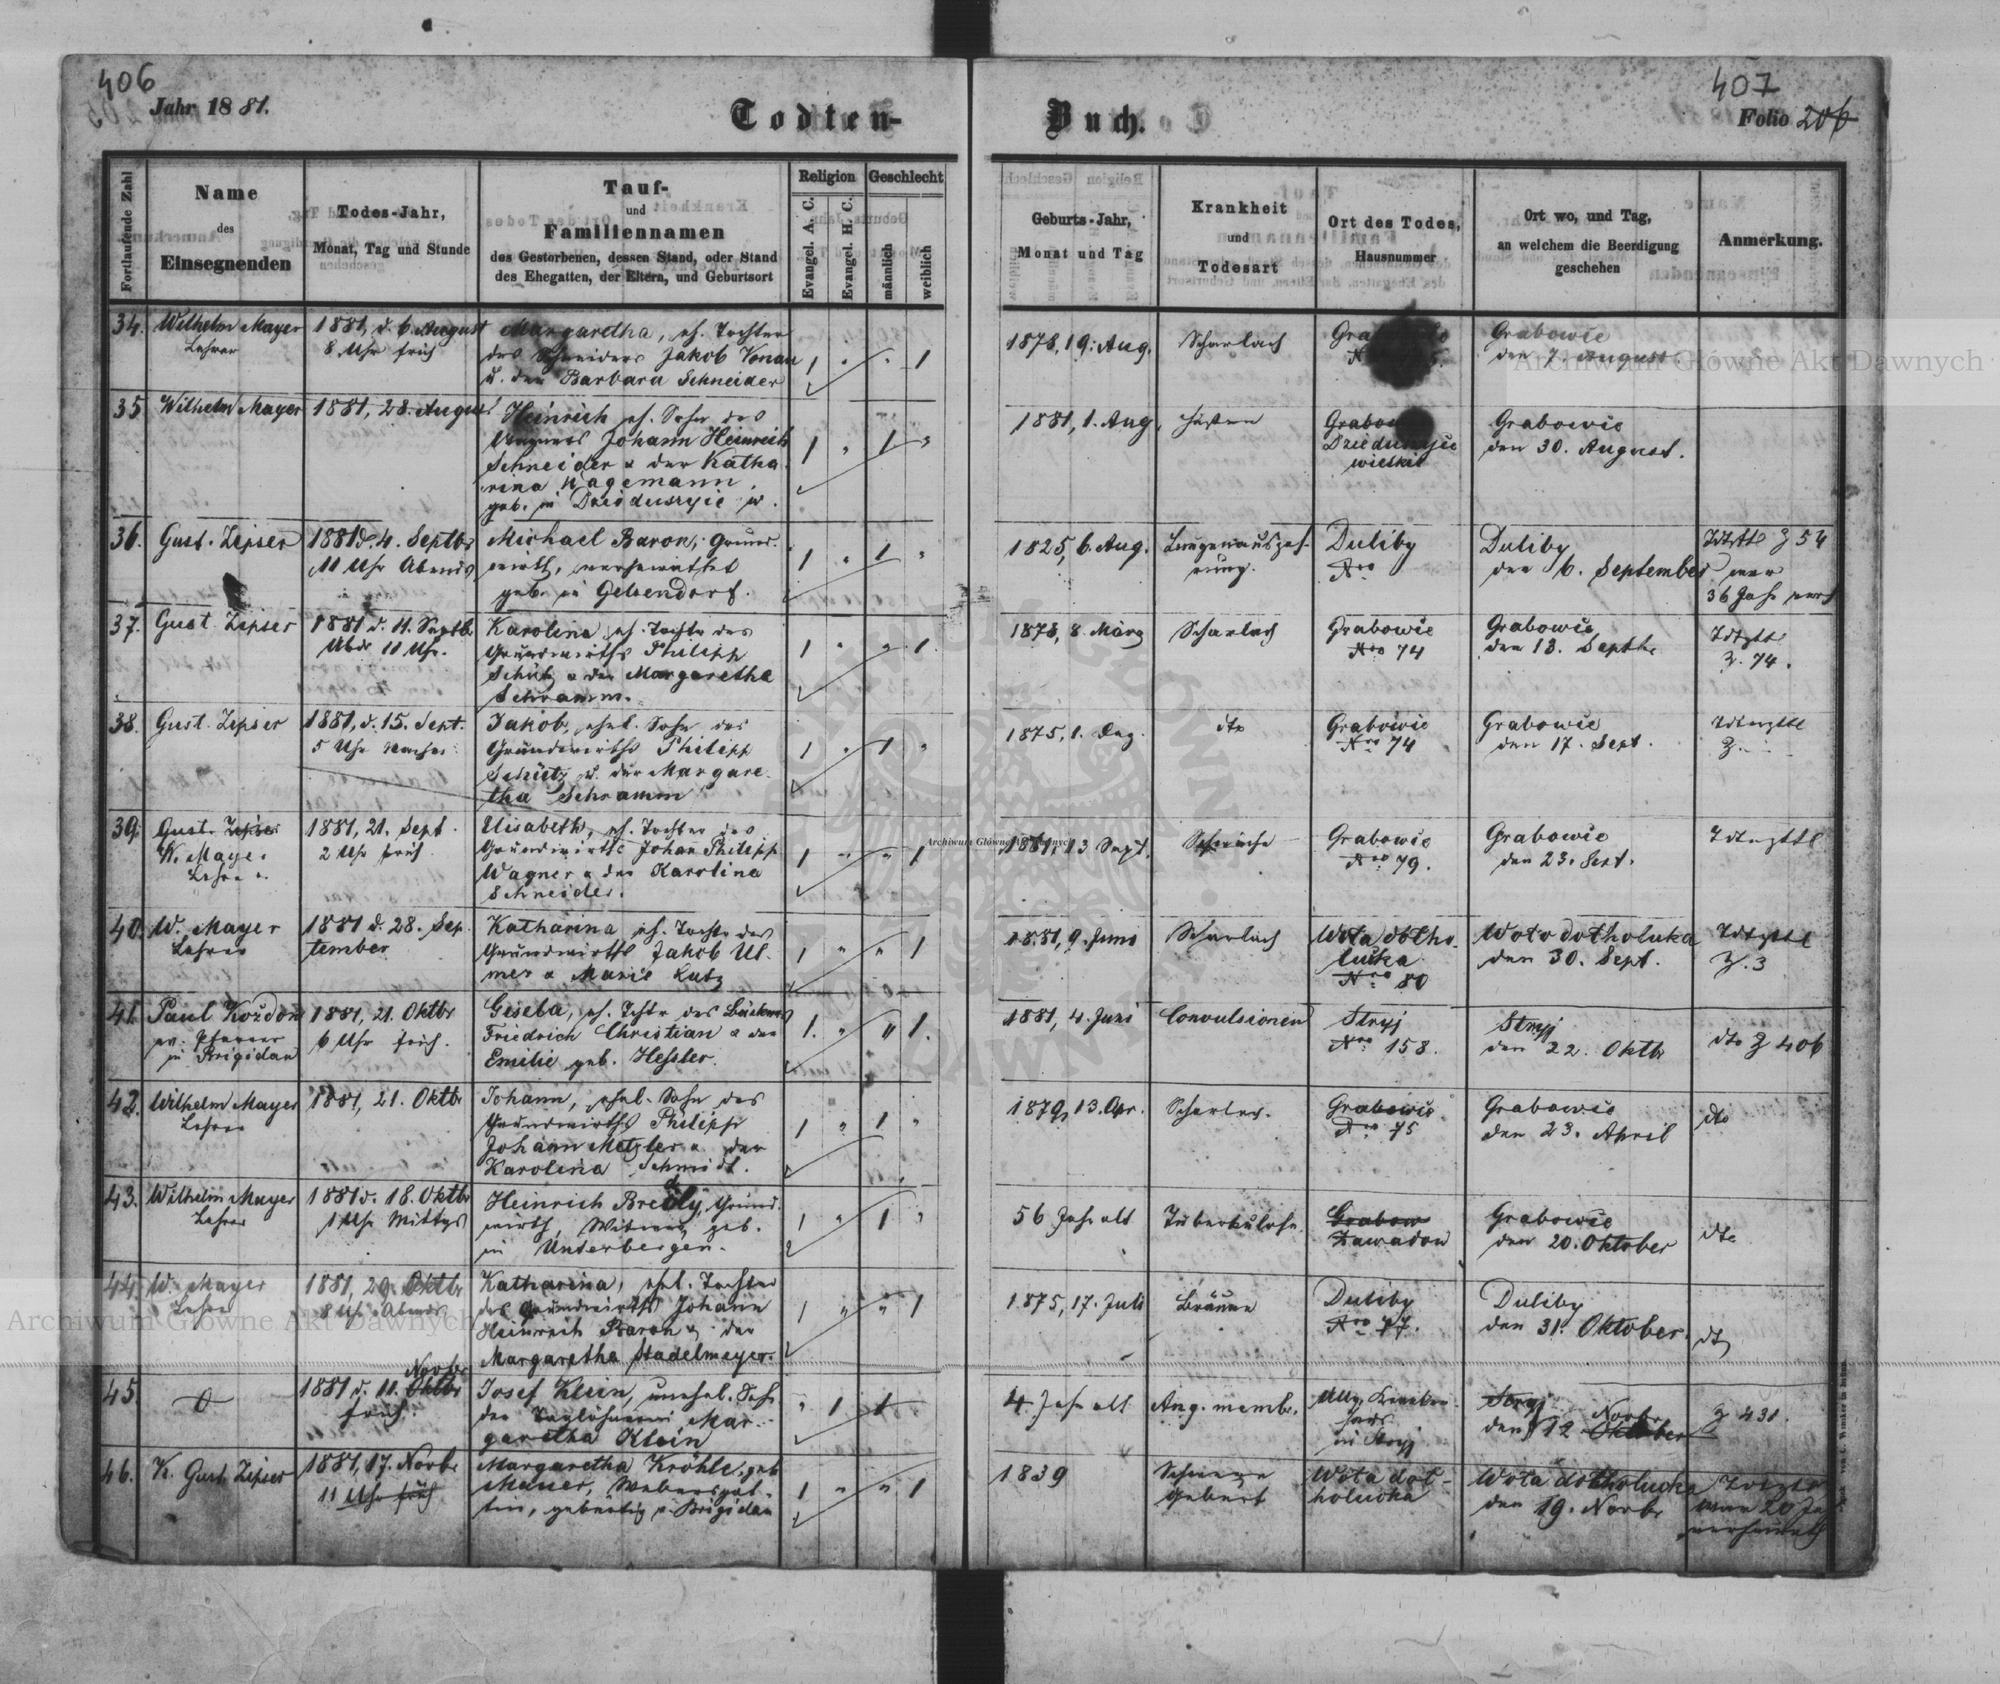 406
Jahr 1881.
Todten-
Buch.
407
Folio 206
Fortlaufende Zahl
Name
des
Einsegnenden
Todes-Jahr,
Monat, Tag und Stunde
Tauf-
und
Familiennamen
des Gestorbenen, dessen Stand, oder Stand
des Ehegatten, der Eltern, und Geburtsort
Religion
Evangel. A. C.
Evangel. H. C.
Geschlecht
männlich
weiblich
Geburts-Jahr,
Monat und Tag
Krankheit
und
Todesart
Ort des Todes,
Hausnummer
Ort wo, und Tag,
an welchem die Beerdigung
geschehen
Anmerkung.
34.
Wilhelm Mayer
Lehrer
1881, d. 6. August
8 Uhr früh
Margaretha, eh. Tochter
des Schneiders Jakob Vonau
u. der Barbara Schneider
1 " " 1
1878, 19. Aug.
Scharlach
Grabowie
den 7. August
35
Wilhelm Mayer
1881, 28. August
Heinrich eh. Sohn des
Wagners Johann Heinrich
Schneider u der Katha
rina Hagemann,
geb. in Dzieduszyie w.
1 " 1 "
1881, 1. Aug.
Husten
Grabowie
den 30. August.
36.
Gust. Zipser
1881 d. 4. Septbr
11 Uhr Abends
Michael Baron, Grund-
wirth, verheirathet
geb. in Gelsendorf.
1 " 1 "
1825, 6. Aug.
Lungenauszeh-
rung.
Duliby
Nro
Duliby
den 6. September
Z 54
war
36 Jahr verh
37.
Gust. Zipser
1881 d. 11. Septbr
11 Uhr.
Karolina, eh. Tochter des
Grundwirths Philipp
Schütz u der Margaretha
Schramm.
1 " " 1.
1878, 8. März
Scharlach
Grabowie
Nro 74
Grabowie
den 13. Septbr
Z. 74.
38.
Gust. Zipser
1881, d. 15. Sept.
5 Uhr Nachm.
Jakob, ehel. Sohn des
Grundwirths Philipp
Schütz u. der Margare-
tha Schramm
1 " 1 "
1875, 1.
dto
Grabowie
Nro 74
Grabowie
den 17. Sept.
Z.
39.
Gust. Zipser
W. Mayer
Lehrer
1881, 21. Sept.
2 Uhr früh.
Elisabeth, eh. Tochter des
Grundwirths Johan Philipp
Wagner u der Karolina
Schneider.
1 " " 1
1881, 13 Sept.
Schwäche
Grabowie
Nro 79.
Grabowie
den 23. Sept.
40.
W. Mayer
Lehrer
1881 d. 28. Sep-
tember
Katharina eh. Tochter des
Grundwirths Jakob Ul-
mer u Marie Lutz
1 " " 1
1881, 9. Juni
Scharlach
Wola dolho-
lucka
Nro 80
Wola dolholuka
den 30. Sept.
Z. 3
41.
Paul Koždoň
ev. Pfarrer
in Brigidau
1881, 21. Oktbr
6 Uhr früh.
Gisela, eh. Tchtr des Bäckers
Friedrich Christian u der
Emilie geb. Hessler.
1. " " 1.
1881, 4. Juni
Convulsionen
Stryj
Nro 158.
Stryj
den 22. Oktbr
dto Z 406
42.
Wilhelm Mayer
Lehrer
1881, 21. Oktbr
Johann, ehel. Sohn des
Grundwirths Philipp
Johann Metzler u. der
Karolina Schmidt.
1 " 1 "
1879, 13. Apr.
Scharlach.
Grabowie
Nro 75
Grabowie
den 23. April
dto
43.
Wilhelm Mayer
Lehrer
1881 d. 18. Oktbr
1 Uhr Mittgs
Heinrich Bredy, Grund-
wirth, Witwer, geb.
in Unterbergen.
1 " 1 "
56 Jahr alt
Tuberkulose
Grabow
Zawadow
Grabowie
den 20. Oktober
dto
44.
W. Mayer
Lehrer
1881, 29. Oktbr
8 Uhr Abends
Katharina, ehel. Tochter
des Grundwirths Johann
Heinrich Baron u. der
Margaretha Stadelmeyer.
1 " " 1
1875, 17. Juli
Bräune
Duliby
Nro 77.
Duliby
den 31. Oktober.
dto
45.
1881 d. 11. Oktbr Novbr
früh.
Josef Klein, unehel. Sohn
der Taglöhnerin Mar-
garetha Klein
" 1 1
4 Jahr alt
Ang. membr.
Allg. Kranken-
haus
in Stryj
Stryj
den 12 Oktober Novbr
Z 431.
46.
K. Gust. Zipser
1881, 17. Novbr
11 Uhr früh
Margaretha Kröhle, geb
Mauer, Webersgat-
tin, gebürtig in Brigidau
1 " " 1
1839
Schwere
Geburt
Wola dol-
holucka
Wola dolholucka
den 19. Novbr
war 20 Ja
verheirath
Archiwum Główne Akt Dawnych
Archiwum Główne Akt Dawnych
Archiwum Główne Akt Dawnych